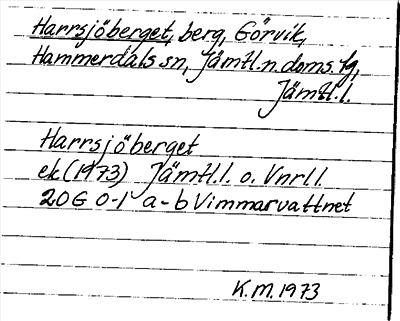 Harrsjöberget, berg, Görvik,
Hammerdals sn, Jämtl.n.doms.fg,
Jämtl.l.
Harrsjöberget
ek (1973) Jämtl.l. o. Vnrl.l.
20G 0-1 a-b Vimmarvattnet
K.M.1973